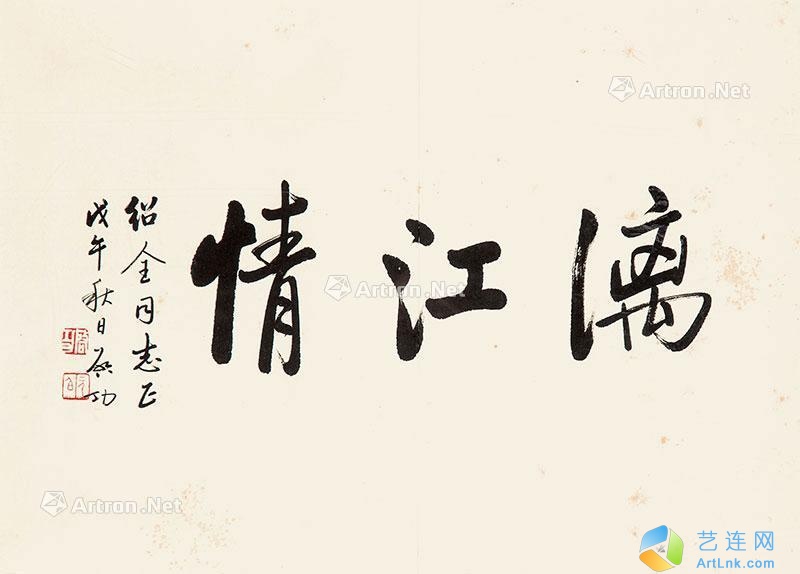 漓江情
绍金同志正
戊午秋日启功
Artron.Net
Artron.Net
Artron.Net
艺连网
ArtLnk.com